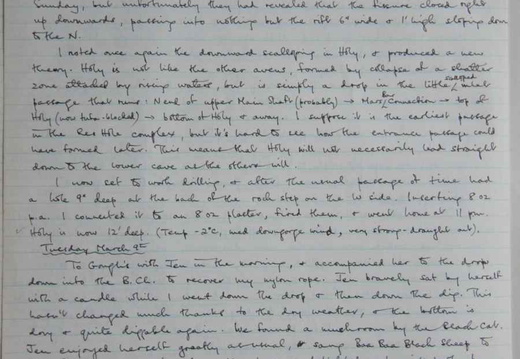 Sunday, but unfortunately they had revealed that the fissure closed right
up downwards, passing into nothing but the rift 6" wide & 1' high sloping down
to the N.
I noted once again the downward scalloping in Holy, & produced a new
theory. Holy is not like the other avens, formed by collapse of a shatter
zone attacked by rising waters, but is simply a drop in the little inlet
passage that runs: N end of upper Main Shaft (probably) → Mars Connection → top of
Holy (now tube-blocked) → bottom of Holy & away. I suppose it is the earliest passage
in the Res Hole complex, but it's hard to see how the entrance passage could
have formed later. This means that Holy will not necessarily lead straight
down to the lower cave as the others will.
I now set to work drilling, & after the usual passage of time had
a hole 9" deep at the back of the rock step on the W side. Inserting 8 oz
p.a. I connected it to an 8 oz plaster, fired them, & went home at 11 pm.
Holy is now 12' deep. (Temp -2°C, med downgorge wind, very strong draught out).
Tuesday March 9th
To Gonghi's with Jen in the morning, & accompanied her to the drop
down into the B.Ch. to recover my nylon rope. Jen bravely sat by herself
with a candle while I went down the drop & then down the dig. This
hasn't changed much thanks to the dry weather, & the bottom is
dry & quite diggable again. We found a mushroom by the Black Cat.
Jen enjoyed herself greatly as usual, & sang Baa Baa Black Sheep to